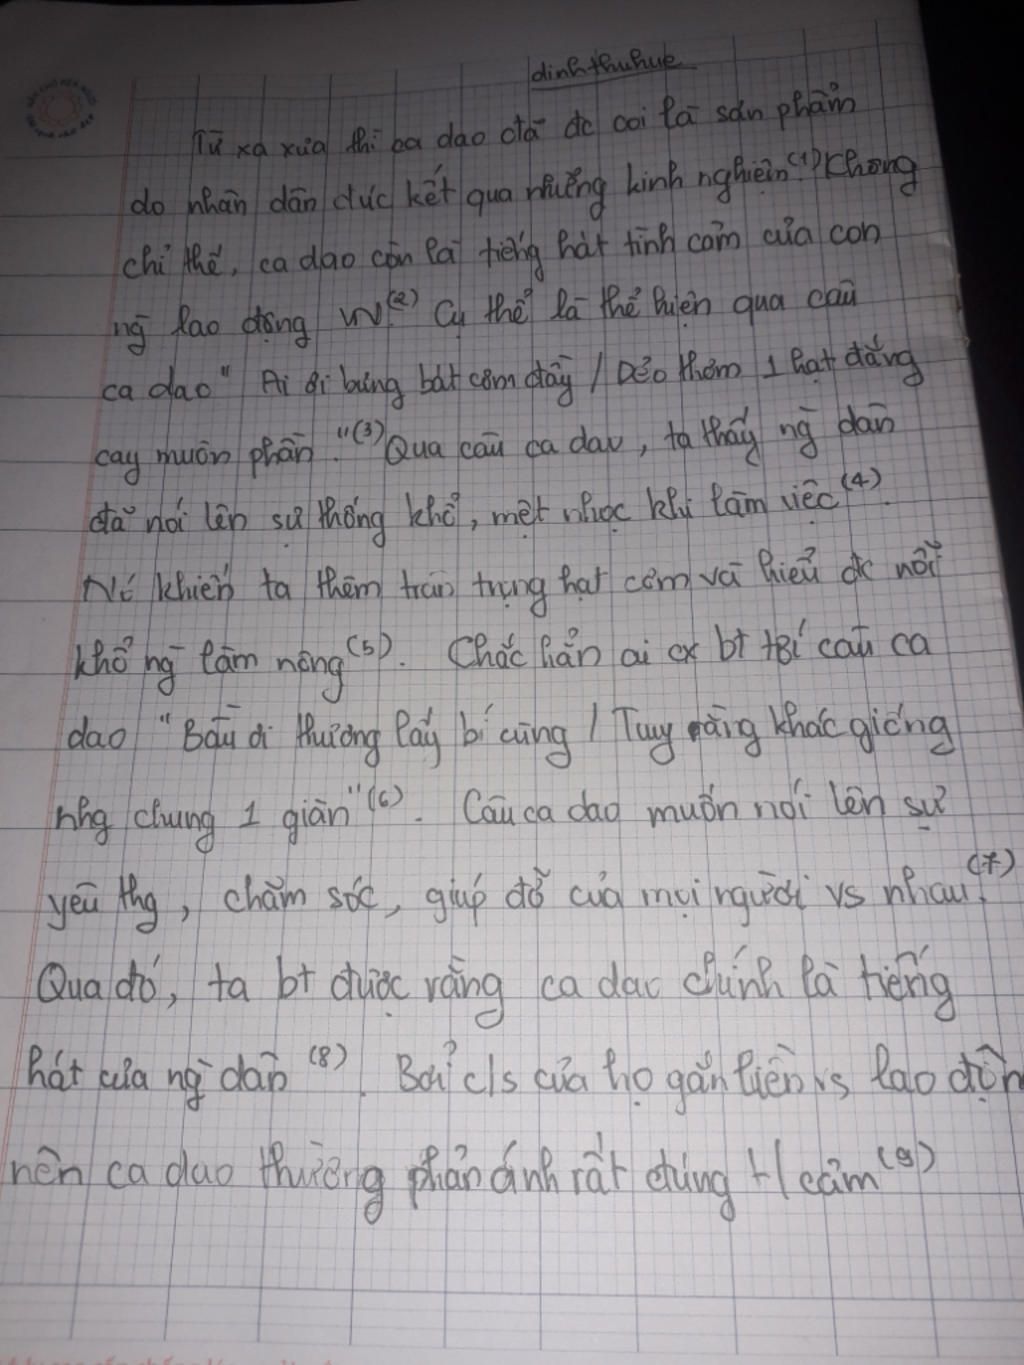 dinhthuhue
Từ xa xưa thì ca dao đã đc coi là sản phẩm
do nhân dân đúc kết qua những kinh nghiệm(1). Không
chỉ thế, ca dao còn là tiếng hát tình cảm của con
ng lao động VN(2). Cụ thể là thể hiện qua câu
ca dao "Ai ơi bưng bát cơm đầy / Dẻo thơm 1 hạt đắng
cay muôn phần."(3) Qua câu ca dao, ta thấy ng dân
đã nói lên sự thống khổ, mệt nhọc khi làm việc(4).
Nó khiến ta thêm trân trọng hạt cơm và hiểu đc nỗi
khổ ng làm nông(5). Chắc hẳn ai cx bt tới câu ca
dao "Bầu ơi thương lấy bí cùng / Tuy rằng khác giống
nhg chung 1 giàn"(6). Câu ca dao muốn nói lên sự
yêu thg, chăm sóc, giúp đỡ của mọi người vs nhau(7).
Qua đó, ta bt được rằng ca dao chính là tiếng
hát của ng dân (8). Bởi c/s của họ gắn liền vs lao độn
nên ca dao thường phản ánh rất đúng t/cảm(9)